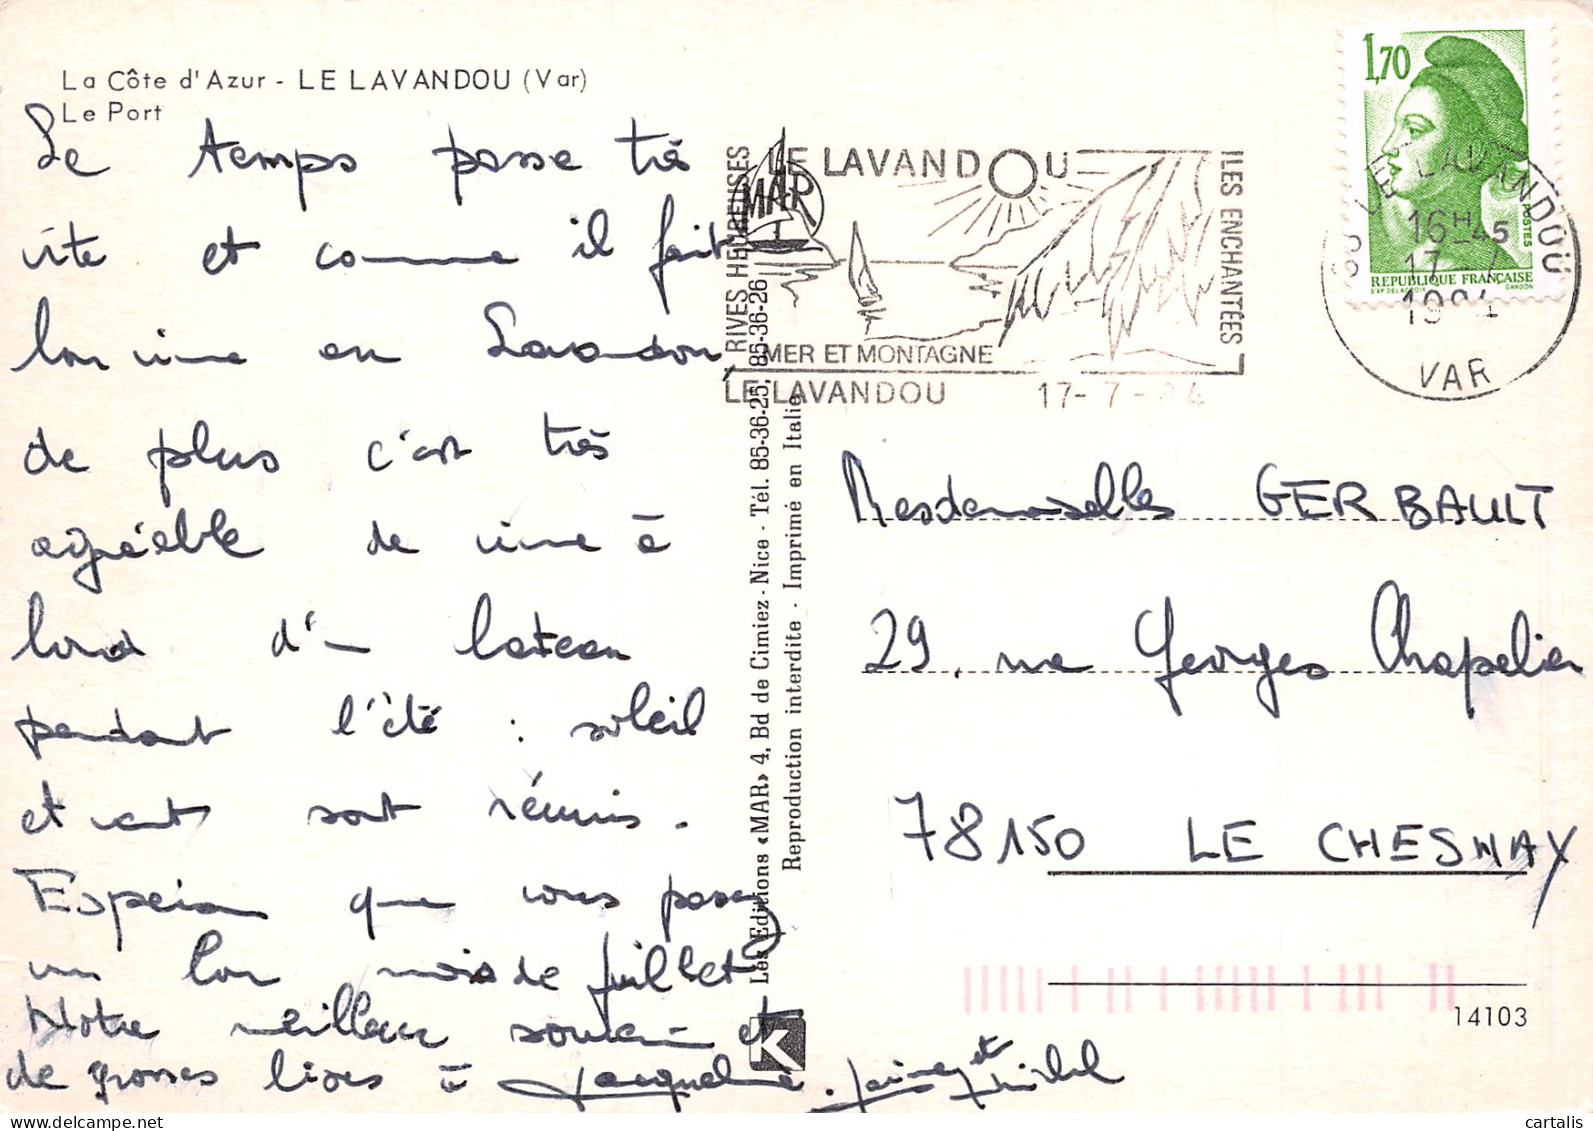 La Côte d'Azur - LE LAVANDOU (Var)
Le Port
Le temps passe très
vite et comme il fait
bon vivre au Lavandou,
de plus c'est très
agréable de vivre à
bord d'un bateau
pendant l'été : soleil
et vent sont réunis.
Espérons que vous passez
un bon mois de juillet
Notre meilleur souvenir et
de grosses bises à Jacqueline.
et
RIVES HEUREUSES
LE LAVANDOU
MAR
ILES ENCHANTÉES
MER ET MONTAGNE
LE LAVANDOU 17-7-84
1,70
POSTES
REPUBLIQUE FRANÇAISE
D'AP DELACROIX GANDON
83 LE LAVANDOU
16H45
17-7
1984
VAR
Les Editions «MAR» 4, Bd de Cimiez - Nice - Tél. 85-36-25, 85-36-26
Reproduction interdite - Imprimé en Italie
K
Mesdemoiselles GERBAULT
29, rue Georges Chapelier
78150 LE CHESNAY
14103
cartalis
www.delcampe.net